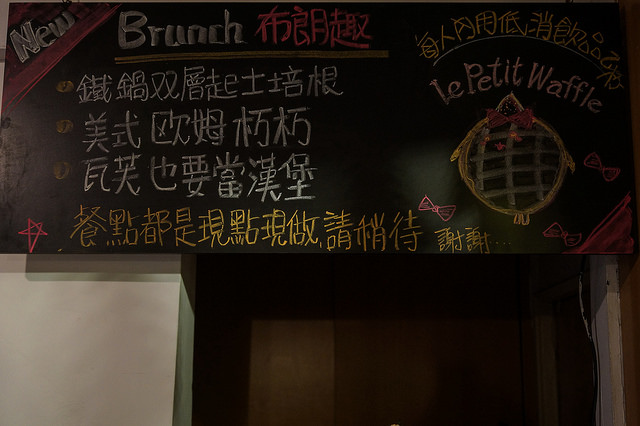 New
Brunch 布朗趣
鐵鍋双層起士培根
美式欧姆杇杇
瓦芙也要當漢堡
餐點都是現點現做,請稍待 謝謝...
每人內用低消飲品乙杯
Le Petit Waffle